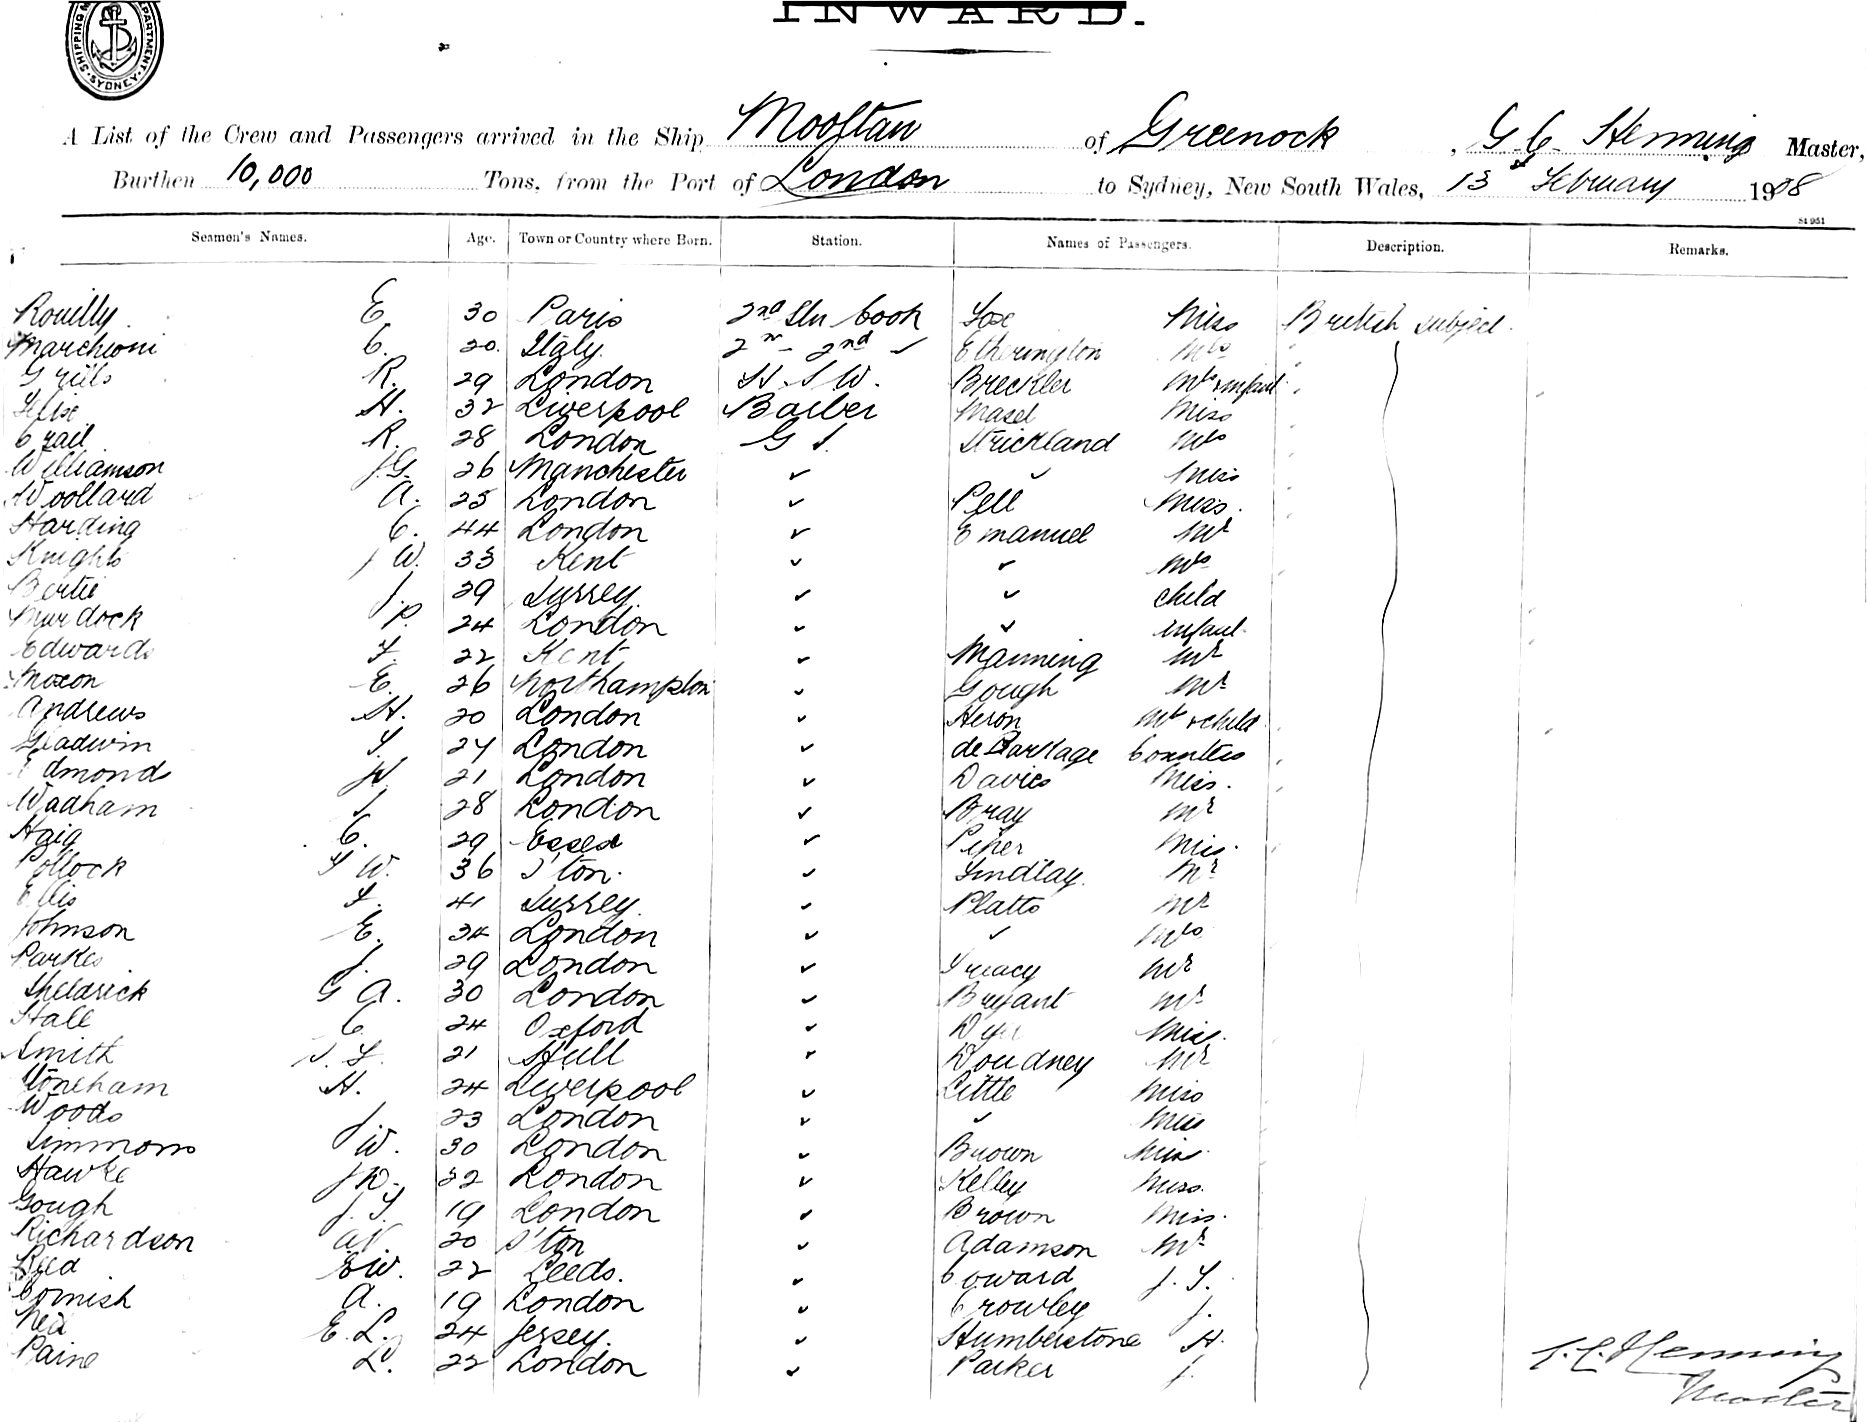 SHIPPING DEPARTMENT SYDNEY
INWARD.
A List of the Crew and Passengers arrived in the Ship Mooltan of Greenock, G. C. Henning Master,
Burthen 10,000 Tons, from the Port of London to Sydney, New South Wales, 13 February 1908
St 951
Seamen's Names. Age. Town or Country where Born. Station. Names of Passengers. Description. Remarks.
Rouilly E 30 Paris 2nd Cook Fox Miss British subject.
Marchioni C. 20 Italy 2nd ✓ Etherington Mrs
R. 29 London Breckler Mrs & infant
Felix H. 32 Liverpool Barber Masel Miss
Crail R. 28 London G S. Strickland Mrs
Williamson J.G. 26 Manchester ✓ ✓ Miss
Woollard A. 25 London ✓ Pell Miss.
Harding C. 44 London ✓ Emanuel Mr
Knights W. 33 Kent ✓ ✓ Mrs
Bertie J. 29 Surrey ✓ ✓ child
Murdock P. 24 London ✓ ✓ infant
Edwards F. 22 Kent ✓ Manning Mr
Moxon E. 26 Northampton ✓ Gough Mr
Andrews H. 20 London ✓ Heron Mr & child
Gladwin 24 London ✓ Countess
Edmonds 21 London ✓ Davies Miss.
Wadham J 28 London ✓ Bray Mr
Haig C. 29 Essex ✓ Piper Miss.
Pollock W. 36 S'ton. ✓ Findlay Mr
Ellis F. 41 Surrey ✓ Platts Mr
Johnson E. 34 London ✓ ✓ Mrs
Parkes J. 29 London ✓ Treacy Mr
Sheldrick G A. 30 London ✓ Bryant Mr
Hall C. 24 Oxford ✓ Dyer Miss.
Smith 21 Hull ✓ Doudney Mr
Stoneham H. 24 Liverpool ✓ Little Miss
Woods J 23 London ✓ ✓ Miss
Simmons W. 30 London ✓ Brown Miss
Hawke J R. 22 London ✓ Kelley Miss.
Gough J. 19 London ✓ Brown Miss.
Richardson 20 S'ton ✓ Adamson Mr
Reed E W. 22 Leeds. ✓ Coward J.
Cornish A. 19 London ✓ Crowley J.
E. L. 24 Jersey. ✓ Humberstone H.
Paine L. 22 London ✓ Parker J.
G. C. Henning
Master